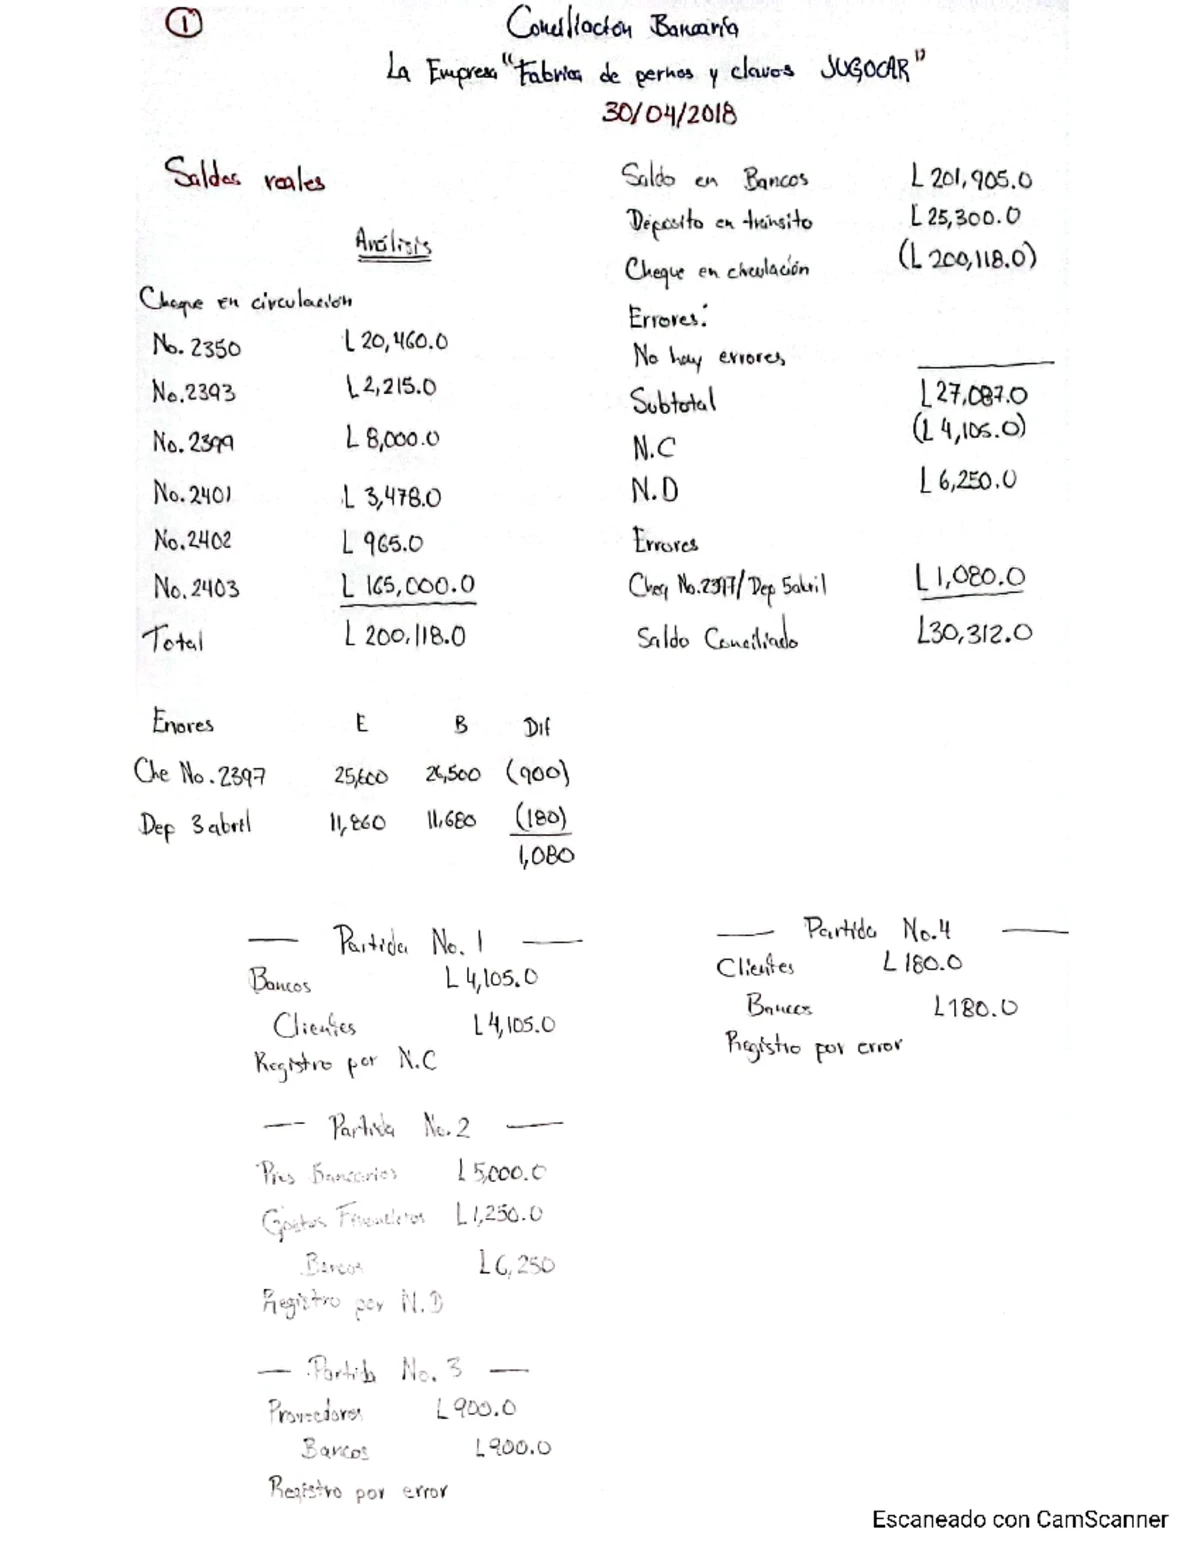 1
Conciliación Bancaria
La Empresa "Fabrica de pernos y clavos JUGOCAR"
30/04/2018
Saldos reales
Análisis
Cheque en circulación
No. 2350 L 20,460.0
No. 2393 L 2,215.0
No. 2399 L 8,000.0
No. 2401 L 3,478.0
No. 2402 L 965.0
No. 2403 L 165,000.0
Total L 200,118.0
Saldo en Bancos L 201,905.0
Déposito en tránsito L 25,300.0
Cheque en circulación (L 200,118.0)
Errores:
No hay errores
Subtotal L 27,087.0
N.C (L 4,105.0)
N.D L 6,250.0
Errores
Cheq No. 2397/ Dep 5abril L 1,080.0
Saldo Conciliado L30,312.0
Errores E B Dif
Che No. 2397 25,600 26,500 (900)
Dep 3 abril 11,860 11,680 (180)
1,080
— Partida No. 1 —
Bancos L 4,105.0
Clientes L 4,105.0
Registro por N.C
— Partida No. 2 —
Pres Bancarios L 5,000.0
Gastos Financieros L 1,250.0
Bancos L 6,250
Registro por N.D
— Partida No. 3 —
Proveedores L 900.0
Bancos L 900.0
Registro por error
— Partida No.4 —
Clientes L 180.0
Bancos L 180.0
Registro por error
Escaneado con CamScanner